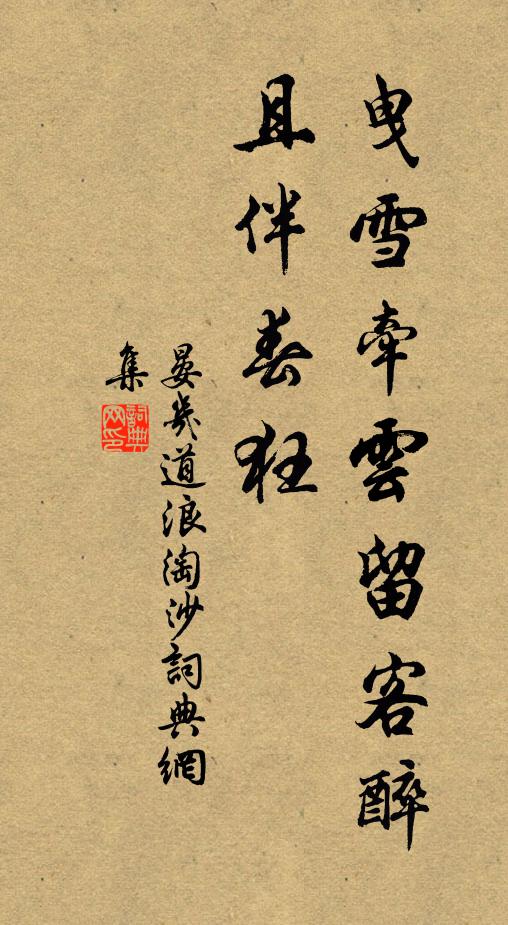 曳雪牽雲留客醉
且伴春狂
晏幾道浪淘沙詞典網
集
詞典
网印